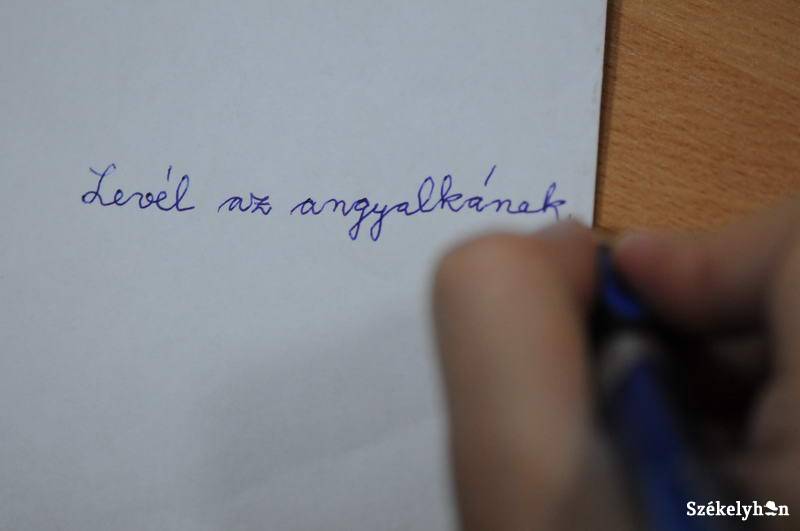 Levél az angyalkának
Székelyhon